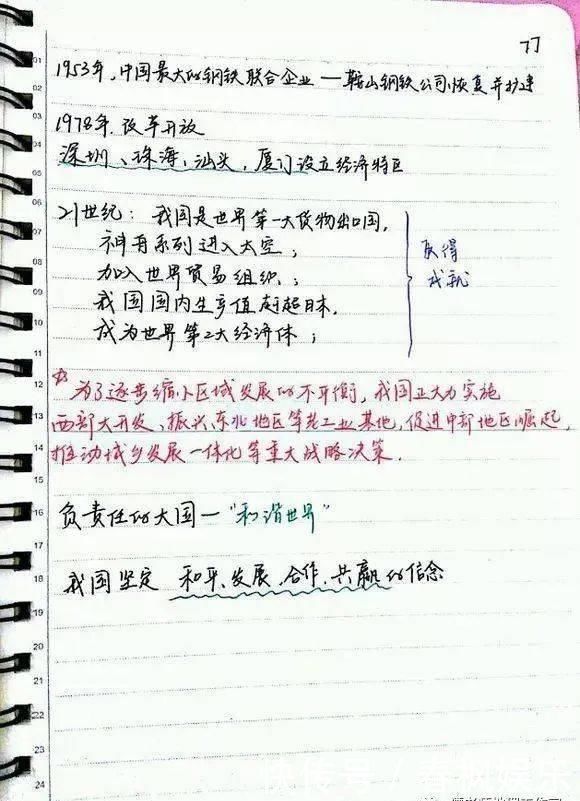 77
1953年,中国最大的钢铁联合企业—鞍山钢铁公司恢复并扩建
1978年,改革开放
深圳、珠海、汕头,厦门设立经济特区
21世纪:我国是世界第一大货物出口国,
神舟系列进入太空;
加入世界贸易组织;
我国国内生产值赶超日本,
成为世界第2大经济体;
获得
成就
☆为了逐步缩小区域发展的不平衡,我国正大力实施
西部大开发、振兴东北地区等老工业基地,促进中部地区崛起,
推动城乡发展一体化等重大战略决策.
负责任的大国—“和谐世界”
我国坚定 和平、发展、合作、共赢的信念
01
02
03
04
05
06
07
08
09
10
11
12
13
14
15
16
17
18
19
20
21
22
23
24